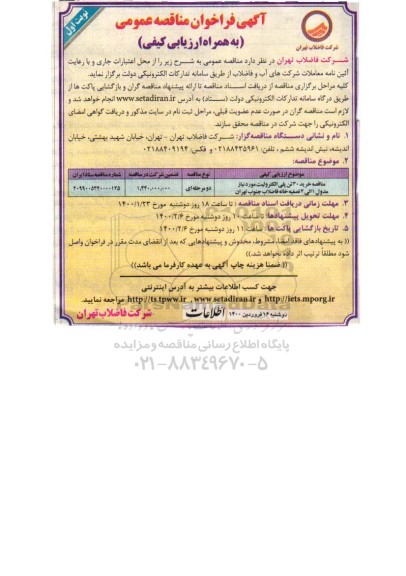 نوبت اول
آگهی فراخوان مناقصه عمومی
(به همراه ارزیابی کیفی)
شرکت فاضلاب تهران
شرکت فاضلاب تهران در نظر دارد مناقصه عمومی به شرح زیر را از محل اعتبارات جاری و با رعایت
آئین نامه معاملات شرکت های آب و فاضلاب از طریق سامانه تدارکات الکترونیکی دولت برگزار نماید.
کلیه مراحل برگزاری مناقصه از دریافت اسناد مناقصه تا ارائه پیشنهاد مناقصه گران و بازگشایی پاکت ها از
طریق درگاه سامانه تدارکات الکترونیکی دولت (ستاد) به آدرس www.setadiran.ir انجام خواهد شد و
لازم است مناقصه گران در صورت عدم عضویت قبلی، مراحل ثبت نام در سایت مذکور و دریافت گواهی امضای
الکترونیکی را جهت شرکت در مناقصه محقق سازند.
۱. نام و نشانی دستگاه مناقصه گزار: شرکت فاضلاب تهران - تهران، خیابان شهید بهشتی، خیابان
اندیشه، نبش اندیشه ششم، تلفن: ۰۲۱۸۸۴۳۵۹۶۱ و فکس: ۰۲۱۸۸۴۰۹۱۹۴
۲. موضوع مناقصه:
موضوع ارزیابی کیفی نوع مناقصه تضمین شرکت در مناقصه شماره مناقصه ستاد ایران
مناقصه خرید ۳۰ تن پلی الکترولیت مورد نیاز مدول ۱ الی ۶ تصفیه خانه فاضلاب جنوب تهران دو مرحله ای ۱,۴۴۰,۰۰۰,۰۰۰
۳. مهلت زمانی دریافت اسناد مناقصه: تا ساعت ۱۸ روز دوشنبه مورخ ۱۴۰۰/۱/۲۳
۴. مهلت تحویل پیشنهادها: تا ساعت ۱۰ روز دوشنبه مورخ ۱۴۰۰/۲/۶
۵. تاریخ بازگشایی پاکت ها: ساعت ۱۱ روز دوشنبه مورخ ۱۴۰۰/۲/۶
(( به پیشنهادهای فاقد امضا، مشروط، مخدوش و پیشنهادهایی که بعد از انقضای مدت مقرر در فراخوان واصل
شود مطلقاً ترتیب اثر داده نخواهد شد.))
(( ضمنا هزینه چاپ آگهی به عهده کارفرما می باشد.))
جهت کسب اطلاعات بیشتر به آدرس اینترنتی
http://iets.mporg.ir و www.setadiran.ir ، http://ts.tpww.ir مراجعه نمایید.
دوشنبه ۱۶ فروردین ۱۴۰۰
اطلاعات
شرکت فاضلاب تهران
پایگاه اطلاع رسانی مناقصه و مزایده
۰۲۱-۸۸۳۴۹۶۷۰-۵